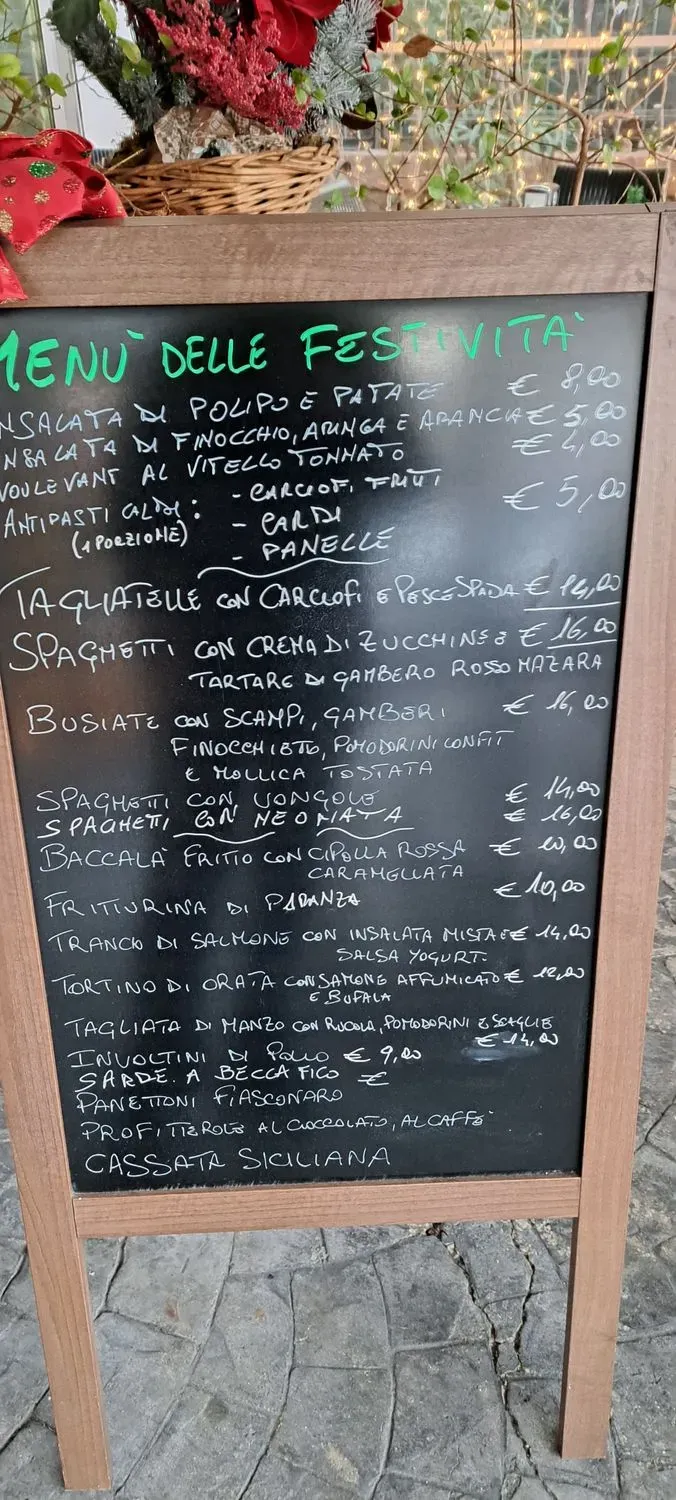 MENU' DELLE FESTIVITA'
INSALATA DI POLIPO E PATATE € 8,00
INSALATA DI FINOCCHIO, ARINGA E ARANCIA € 5,00
VOULEVANT AL VITELLO TONNATO € 4,00
ANTIPASTI CALDI: - CARCIOFI FRITTI € 5,00
(1 PORZIONE) - CARDI
- PANELLE
TAGLIATELLE CON CARCIOFI E PESCE SPADA € 14,00
SPAGHETTI CON CREMA DI ZUCCHINE E € 16,00
TARTARE DI GAMBERO ROSSO MAZARA
BUSIATE CON SCAMPI, GAMBERI € 16,00
FINOCCHIETTO, POMODORINI CONFIT
E MOLLICA TOSTATA
SPAGHETTI CON VONGOLE € 14,00
SPAGHETTI CON NEONATA € 16,00
BACCALA' FRITTO CON CIPOLLA ROSSA € 10,00
CARAMELLATA
FRITTURINA DI PARANZA € 10,00
TRANCIO DI SALMONE CON INSALATA MISTA E € 14,00
SALSA YOGURT.
TORTINO DI ORATA CON SAMONE AFFUMICATO € 12,00
E BUFALA
TAGLIATA DI MANZO CON RUCOLA, POMODORINI E SCAGLIE
€ 14,00
INVOLTINI DI POLLO € 9,00
SARDE. A BECCA FICO €
PANETTONI FIASCONARO
PROFITTEROLE AL CIOCCOLATO, AL CAFFE'
CASSATA SICILIANA